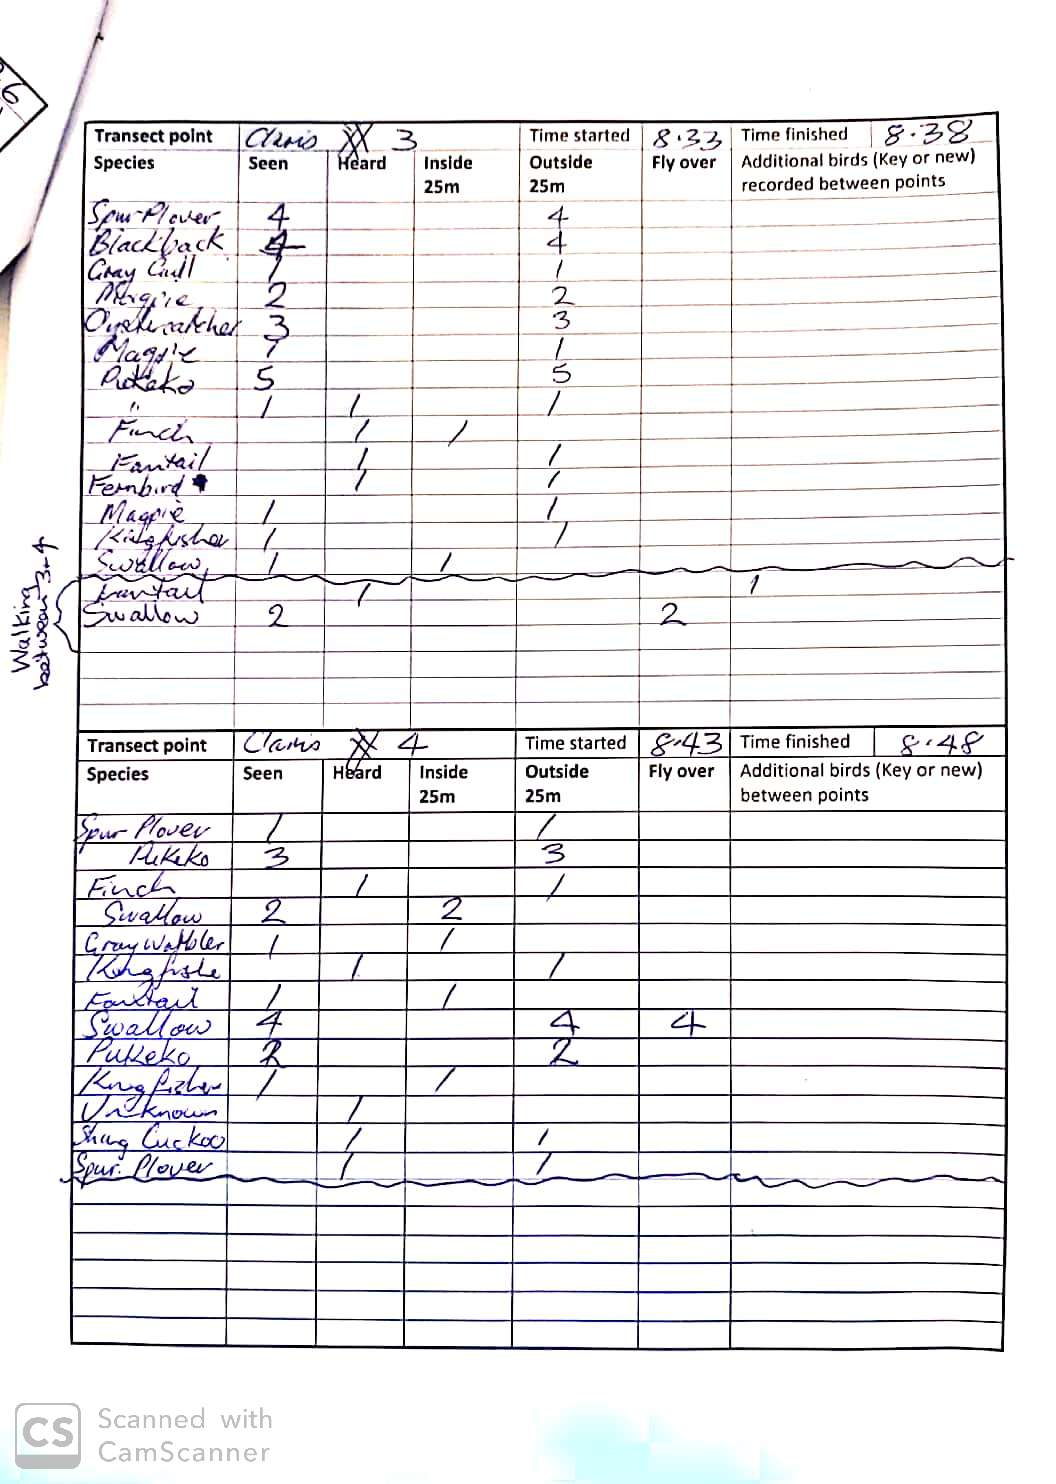 .6
Transect point Claris 3 Time started 8.33 Time finished 8.38
Species Seen Heard Inside 25m Outside 25m Fly over Additional birds (Key or new) recorded between points
Spur-Plover 4 4
Blackback 4 4
Gray Gull 1 1
Magpie 2 2
Oystercatcher 3 3
Magpie 1 1
Pukeko 5 5
" 1 1 1
Finch 1 1
Fantail 1 1
Fernbird 1 1
Magpie 1 1
Kingfisher 1 1
Swallow 1 1
Fantail 1 1
Swallow 2 2
Walking between 3-4
Transect point Claris 4 Time started 8.43 Time finished 8.48
Species Seen Heard Inside 25m Outside 25m Fly over Additional birds (Key or new) between points
Spur Plover 1 1
Pukeko 3 3
Finch 1 1
Swallow 2 2
Gray Warbler 1 1
Kingfishe 1 1
Fantail 1 1
Swallow 4 4 4
Pukeko 2 2
Kingfisher 1 1
Unknown 1
Shing Cuckoo 1 1
Spur. Plover 1 1
CS Scanned with
CamScanner